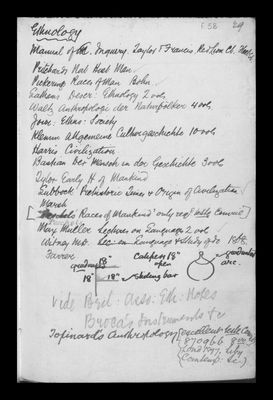 F 58 29
Ethnology
Manual of Eth. Inquiry. Taylor & Francis Red Lion Ct. Fleet St
Prichard's Nat Hist Man
Pickering Races of Man Bohn
Latham's Descr: Ethnology 2 vols
Waitz Anthropologie der Naturvölker 4 vols
Jour. Ethno: Society
Klemm Allgemeine Culturgeschichte 10 vols
Harris Civilization
Bastian Der Mensch in der Geschichte 3 vols
Tylor Early H of Mankind
Lubbock Prehistoric Times & Origin of Civilization
Marsh
[ Races of Mankind only regd with Convict ]
Max Muller Lectures on Language 2 vol
Whitney W.D. Lec: on Language & Study of do 1868.
Farrar
Calipers 18" open
graduated arc
graduated 18"
18" 18" sliding bar
Vide Brit: Asso: Eth: Notes
Broca's Instruments &c
Topinard's Anthropology { excellent little Comp
8709bb
Library
Contemp: Sc. }